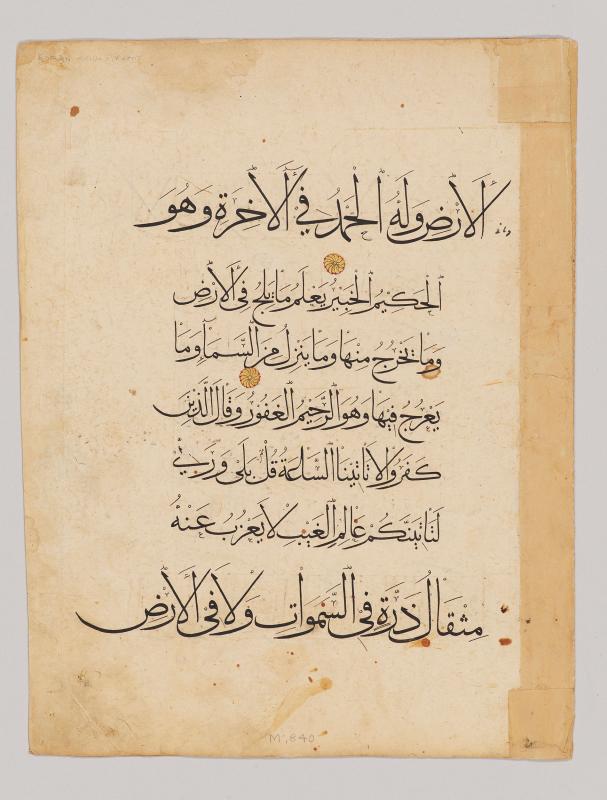 الارض وله الحمد في الاخرة وهو
الحكيم الخبير يعلم ما يلج في الارض
وما يخرج منها وما ينزل من السماء وما
يعرج فيها وهو الرحيم الغفور وقال الذين
كفروا لا تاتينا الساعة قل بلى وربي
لتاتينكم عالم الغيب لا يعزب عنه
مثقال ذرة في السموات ولا في الارض
M.840